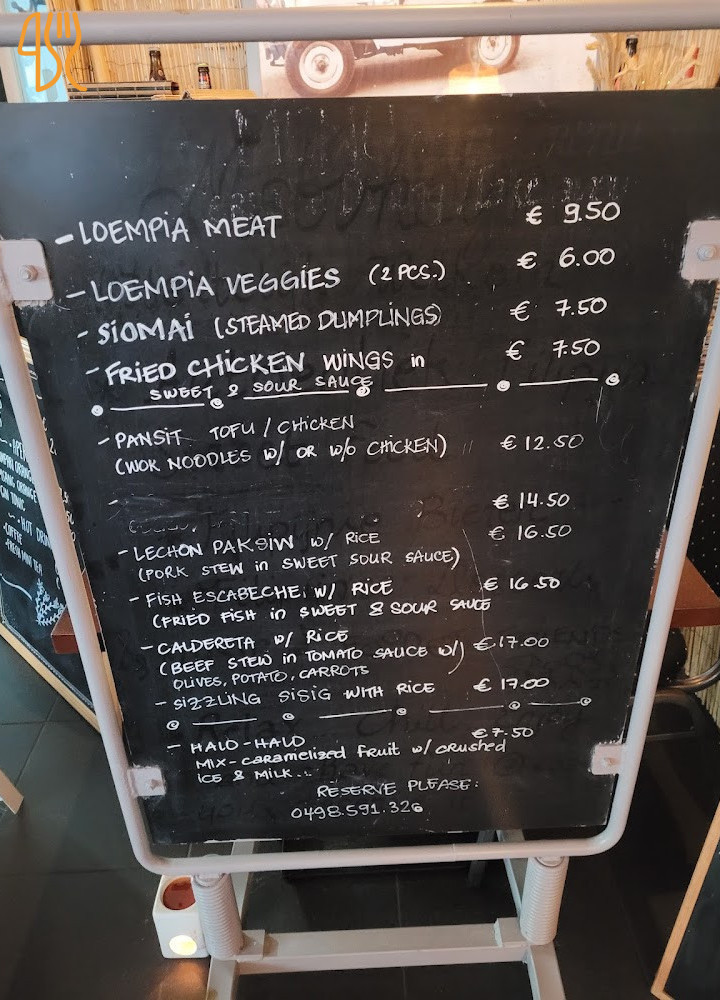 - LOEMPIA MEAT € 9.50
- LOEMPIA VEGGIES (2 PCS.) € 6.00
- SIOMAI (STEAMED DUMPLINGS) € 7.50
- FRIED CHICKEN WINGS in € 7.50
SWEET & SOUR SAUCE
- PANSIT TOFU / CHICKEN
(WOK NOODLES W/ OR W/O CHICKEN) € 12.50
- € 14.50
- LECHON PAKSIW W/ RICE € 16.50
(PORK STEW in SWEET SOUR SAUCE)
- FISH ESCABECHE W/ RICE € 16.50
(FRIED FISH in SWEET & SOUR SAUCE
- CALDERETA W/ RICE
(BEEF STEW in TOMATO SAUCE W/) € 17.00
OLIVES, POTATO, CARROTS
- SIZZLING SISIG WITH RICE € 17.00
- HALO-HALO € 7.50
MIX-caramelized fruit w/ crushed
ICE & MILK...
RESERVE PLEASE:
0498.591.326